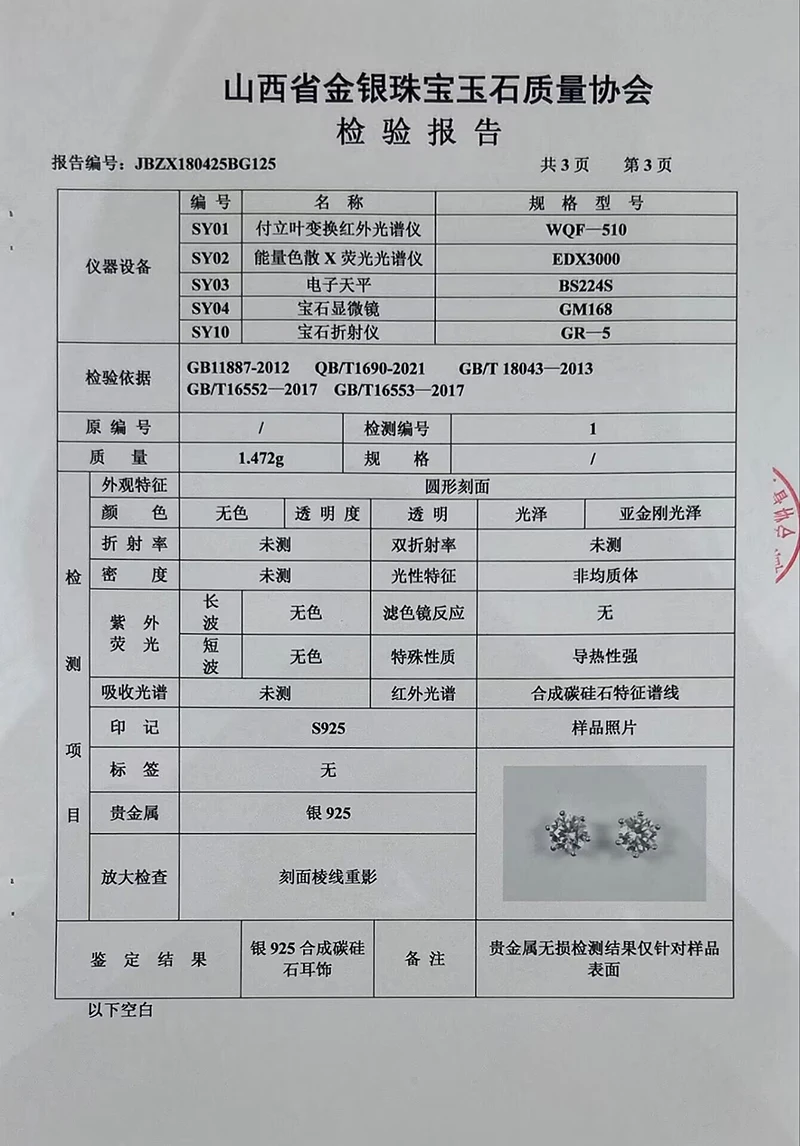 山西省金银珠宝玉石质量协会
检验报告
报告编号：JBZX180425BG125 共 3 页 第 3 页
仪器设备 编号 名称 规格型号
SY01 付立叶变换红外光谱仪 WQF—510
SY02 能量色散 X 荧光光谱仪 EDX3000
SY03 电子天平 BS224S
SY04 宝石显微镜 GM168
SY10 宝石折射仪 GR—5
检验依据 GB11887-2012 QB/T1690-2021 GB/T 18043—2013
GB/T16552—2017 GB/T16553—2017
原编号 / 检测编号 1
质量 1.472g 规格 /
检测项目
外观特征 圆形刻面
颜色 无色 透明度 透明 光泽 亚金刚光泽
折射率 未测 双折射率 未测
密度 未测 光性特征 非均质体
紫外荧光 长波 无色 滤色镜反应 无
短波 无色 特殊性质 导热性强
吸收光谱 未测 红外光谱 合成碳硅石特征谱线
印记 S925 样品照片
标签 无
贵金属 银 925
放大检查 刻面棱线重影
鉴定结果 银 925 合成碳硅 备注 贵金属无损检测结果仅针对样品
石耳饰 表面
以下空白